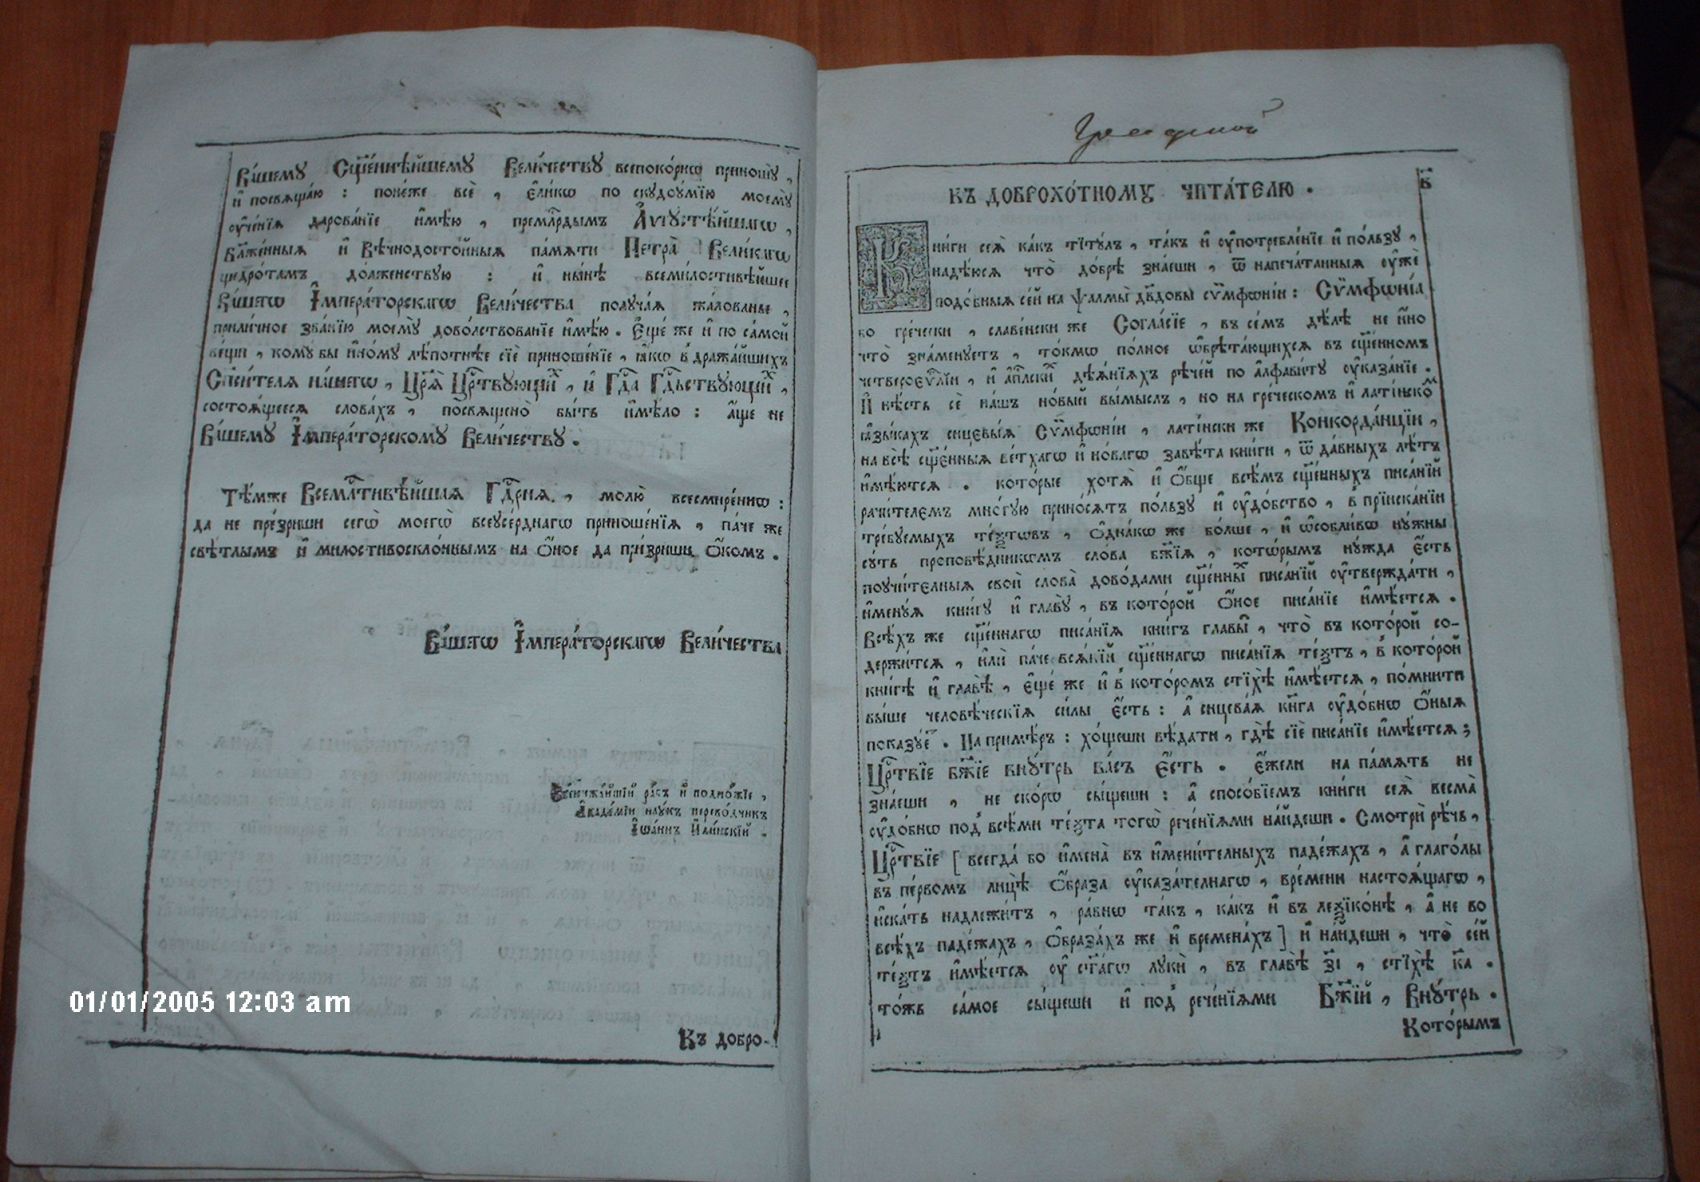 Ва́шему Сщ҃е́ннѣйшему Вели́чествꙋ всепоко́рнѡ приношꙋ̀,
и҆ посвѧща́ю : поне́же всѐ, є҆ли́кѡ по скꙋдоꙋ́мїю моемꙋ̀
ᲂу҆че́нїѧ дарова́нїе и҆мѣ́ю, премꙋ́дрымъ А҆ѵгꙋстѣ́йшагѡ,
Бл҃же́нныѧ и҆ вѣчнодосто́йныѧ па́мѧти Петра̀ Вели́кагѡ
щедро́тамъ до́лженствꙋю : и҆ ны́нѣ всемилостивѣ́йшее
Ва́шегѡ І҆мпера́торскагѡ Вели́чества получа́ѧ жа́лованье,
прили́чное зва́нїю моемꙋ̀ дово́лствованїе и҆мѣ́ю. Є҆ще́ же и҆ по са́мой
ве́щи, комꙋ бы и҆но́мꙋ лѣ́потнѣе сїѐ приноше́нїе, ꙗ҆́кѡ в̾ дража́йшихъ
Сп҃си́телѧ на́шегѡ, Цр҃ѧ̀ Цр҃ствꙋющихъ, и҆ Гд҃а Гд҃ьствꙋющихъ,
состоѧ́щеесѧ слова́хъ, посвѧщено̀ бы́ть и҆мѣ́ло : а҆́ще не
Ва́шемꙋ І҆мпера́торскомꙋ Вели́чествꙋ.
Тѣ́мже Всемл҃тивѣ́йшаѧ Гд҃рнѧ, молю̀ всесмире́ннѡ :
да не пре́зриши сегѡ̀ моегѡ̀ всеꙋсе́рднагѡ приноше́нїѧ, па́че же
свѣ́тлымъ и҆ милостивоскло́ннымъ на ѻ҆́ное да при́зриши ѻ҆́комъ.
Ва́шегѡ І҆мпера́торскагѡ Вели́чества
Всенижа́йшїй ра́бъ и҆ подно́жїе,
А҆кадемі́и наꙋ́къ перево́дчикъ
І҆ѡа́ннъ И҆ли́нскїй.
Къ добро-
в҃
Къ доброхо́тномꙋ чита́телю.
Кни́ги сеѧ̀ ка́къ ті́тꙋлъ, та́къ и҆ ᲂу҆потребле́нїе и҆ по́льзꙋ,
надѣ́юсѧ что̀ до́брѣ зна́еши, ѿ напеча́танныѧ ᲂу҆́же
подо́бныѧ се́й на ѱалмы̀ дв҃дѡвы сѷмфѡні́и : Сѷмфѡні́а
бо гре́чески, славе́нски же Согла́сїе, въ се́мъ дѣ́лѣ не и҆́но
что̀ зна́менꙋетъ, то́кмѡ по́лное ѡ҆брѣта́ющихсѧ въ сщ҃е́нномъ
четверое́ѵ҃лїи, и҆ а҆пⷭ҇лскихъ дѣѧ́нїѧхъ рѣче́й по а҆лфави́тꙋ ᲂу҆каза́нїе.
И҆ нѣ́сть сѐ на́шъ но́вый вы́мыслъ, но на гре́ческомъ и҆ лати́нскомъ
ꙗ҆зы́кахъ сицевы́ѧ Сѷмфѡні́и, лати́нски же Конкорда́нцїи,
на всѐ сщ҃е́нныѧ ве́тхагѡ и҆ но́вагѡ завѣ́та кни́ги, ѿ да́вныхъ лѣ́тъ
и҆мѣ́ютсѧ. кото́рые хотѧ̀ и҆ ѻ҆́бще всѣ́мъ сщ҃е́нныхъ писа́нїй
рачи́телемъ мно́гꙋю прино́сѧтъ по́льзꙋ и҆ ᲂу҆до́бство, в̾ прїиска́нїи
тре́бꙋемыхъ те́ѯтѡвъ, ѻ҆дна́кѡ же бо́лше, и҆ ѡ҆собли́вѡ нꙋ́жны
сꙋ́ть проповѣ́дникѡмъ сло́ва бж҃їѧ, котѡ́рымъ нꙋ́жда є҆́сть
поꙋчи́телныѧ свои̑ слова̀ до́водами сщ҃е́нныхъ писа́нїй ᲂу҆твержда́ти,
и҆менꙋ́ѧ кни́гꙋ и҆ главꙋ̀, въ кото́рой ѻ҆́ное писа́нїе и҆мѣ́етсѧ.
Всѣ́хъ же сщ҃е́ннагѡ писа́нїѧ кни́гъ главы̑, что̀ въ кото́рой со-
держи́тсѧ, и҆лѝ па́че всѧ́кїй сщ҃е́ннагѡ писа́нїѧ те́ѯтъ, в̾ кото́рой
кни́гѣ и҆ главѣ̀, є҆ще́ же и҆ в̾ кото́ромъ стїхѣ̀ и҆мѣ́етсѧ, по́мнити
вы́ше человѣ́ческїѧ си́лы є҆́сть : а҆ сицева́ѧ кни́га ᲂу҆до́бнѡ ѻ҆́ныѧ
показꙋ́етъ. На примѣ́ръ : хо́щеши вѣ́дати, гдѣ̀ сїѐ писа́нїе и҆мѣ́етсѧ;
Цр҃твїе бж҃їе внꙋ́трь ва́съ є҆́сть. є҆́жели на па́мѧть не
зна́еши, не ско́рѡ сы́щеши : а҆ спосо́бїемъ кни́ги сеѧ̀ весма̀
ᲂу҆до́бнѡ под̾ всѣ́ми те́ѯта тогѡ̀ рече́нїѧми на́йдеши. Смотрѝ рѣ́чь,
Цр҃твїе [ всегда́ бо и҆мена̀ въ и҆мени́телныхъ паде́жахъ, а҆ глаго́лы
въ пе́рвомъ лицѣ̀ ѻ҆́браза ᲂу҆каза́телнагѡ, вре́мени настоѧ́щагѡ,
и҆ска́ть надлежи́тъ, ра́внѡ та́къ, ка́къ и҆ въ леѯїко́нѣ, а҆ не во
всѣ́хъ паде́жахъ, ѻ҆браза́хъ же и҆ временахъ ] и҆ на́йдеши, что̀ се́й
те́ѯтъ и҆мѣ́етсѧ ᲂу҆ ст҃а́гѡ лꙋкѝ, въ главѣ̀ з҃і, стїхѣ̀ к҃а.
то́жъ са́мое сы́щеши и҆ под̾ рече́нїѧми Бж҃їй, Внꙋ́трь.
Кото́рымъ
01/01/2005 12:03 am